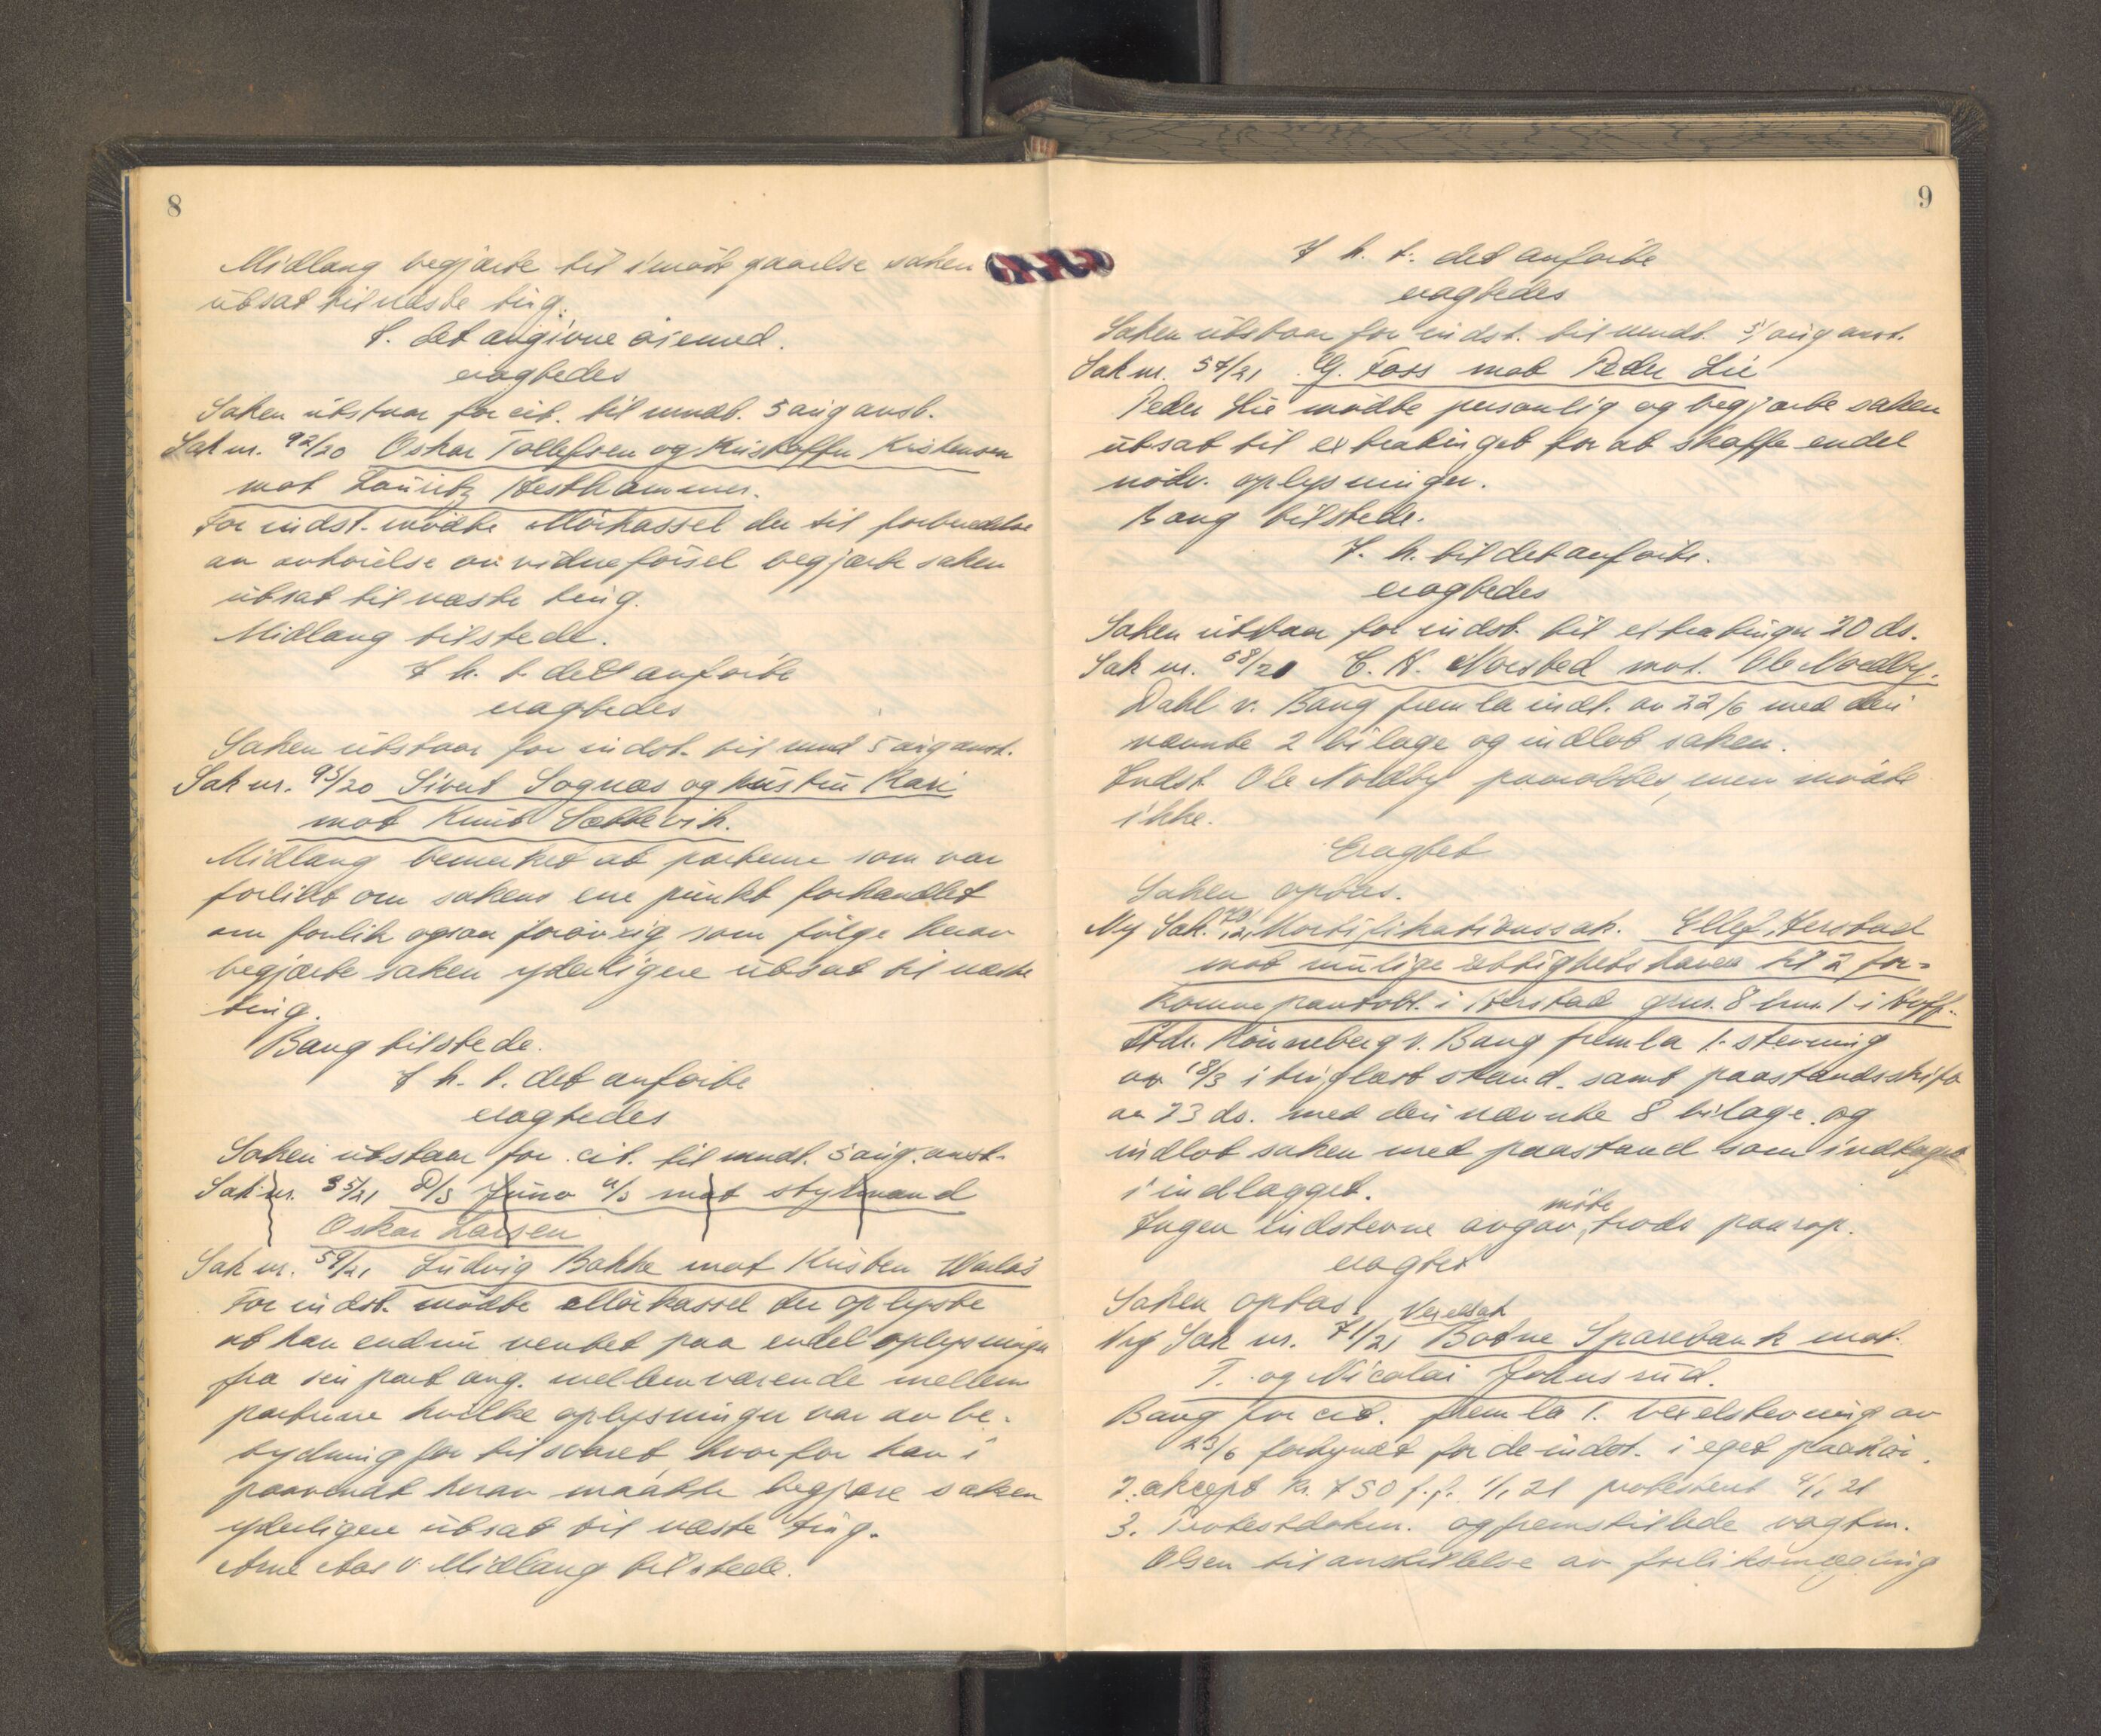 8
Midlang begjærte til imøtegaaelse saken
utsat til næste ting.
I. det angivne øiemed.
eragtedes
Saken utstaar for cit. til mndt. 5 aug anst.
Sak nr. 92/20 Oskar Tollefsen og Kristoffer Kristensen
mot Lauritz Hesthammer.
For indst. mødte Mörkassel der til forberedelse
av avhørelse av vidneførsel begjærte saken
utsat til næste ting.
Midlang tilstede.
I h. t. det anførte
eragtedes
Saken utstaar for indst. til mnd 5 aug anst.
Sak nr. 95/20 Sivert Sognæs og hustru Kari
mot Knut Sættevik.
Midlang bemerket at parterne som var
forlikt om sakens ene punkt forhandlet
om forlik ogsaa forøvrig som følge herav
begjærte saken yderligere utsat til næste
ting.
Bang tilstede.
I h. t. det anførte
eragtedes
Saken utstaar for cit. til mndt. 5 aug. anst.
Sak nr. 35/21 D/S Juno A/S mot styrmand
Oskar Larsen
Sak nr. 59/21 Ludvig Bakke mot Kristen
For indst. mødte Mörkassel der oplyste
at han endnu ventet paa endel oplysninger
fra sin part ang. mellemværende mellem
parterne hvilke oplysninger var av be-
tydning for tilsvaret, hvorfor han i
paavendt herav maatte begjære saken
yderligere utsat til næste ting.
Arne Aas v. Midlang tilstede.
9
I h. t. det anførte
eragtedes
Saken utstaar for indst. til mndt. 5/ aug anst.
Sak nr. 57/21 G. Foss mot Peder Lie
Peder Lie mødte personlig og begjærte saken
utsat til extratinget for at skaffe endel
nødv. oplysninger.
Bang tilstede.
I. h. til det anførte.
eragtedes
Saken utstaar for indst. til extratinget 20 ds.
Sak nr. 58/21 C. H. Norsted mot. Ole Nordby.
Dahl v. Bang fremla indl. av 22/6 med deri
nævnte 2 bilage og indlot saken.
Indst. Ole Nordby paaroptes, men mødte
ikke.
Eragtet
Saken optas.
Ny Sak. 70/21 Mortifikationssak. Ellef Herstad
mot mulige rettighetshaver til 2 for-
komne pantobl. i Herstad grnr. 8 brnr. 1 i Hoff.
Fdr. Rönneberg v. Bang fremla 1. stevning
av 18/3 i tinglæst stand. samt paastandsskrift
av 23 ds. med deri nævnte 8 bilage og
indlot saken med paastand som indtaget
i indlægget.
Ingen indstevne avgav møte, trods paarop.
eragtet
Saken optas.
Ny Sak nr. 71/21 Vexelsak Botne Sparebank mot.
T. og Nicolai Johnsrud.
Bang for cit. fremla 1. vexelstevning av
23/6 forkyndt for de indst. i eget paahør.
2. akcept kr. 750 f.f. 1/1 21 protestert 4/1 21
3. Protestdokm. og fremstillede vagtm.
Olsen til anstillelse av forliksmægling